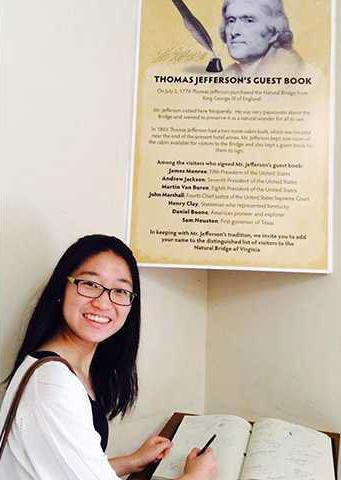 THOMAS JEFFERSON'S GUEST BOOK
On July 5, 1774 Thomas Jefferson purchased the Natural Bridge from
King George III of England.
Mr. Jefferson visited here frequently. He was very passionate about the
Bridge and wanted to preserve it as a natural wonder for all to see.
In 1803 Thomas Jefferson had a two room cabin built, which was located
near the end of the present hotel annex. Mr. Jefferson kept one room of
the cabin available for visitors to the Bridge and also kept a guest book for
them to sign.
Among the visitors who signed Mr. Jefferson's guest book:
James Monroe, Fifth President of the United States
Andrew Jackson, Seventh President of the United States
Martin Van Buren, Eighth President of the United States
John Marshall, Fourth Chief Justice of the United States Supreme Court
Henry Clay, Statesman who represented Kentucky
Daniel Boone, American pioneer and explorer
Sam Houston, First governor of Texas
In keeping with Mr. Jefferson's tradition, we invite you to add
your name to the distinguished list of visitors to the
Natural Bridge of Virginia